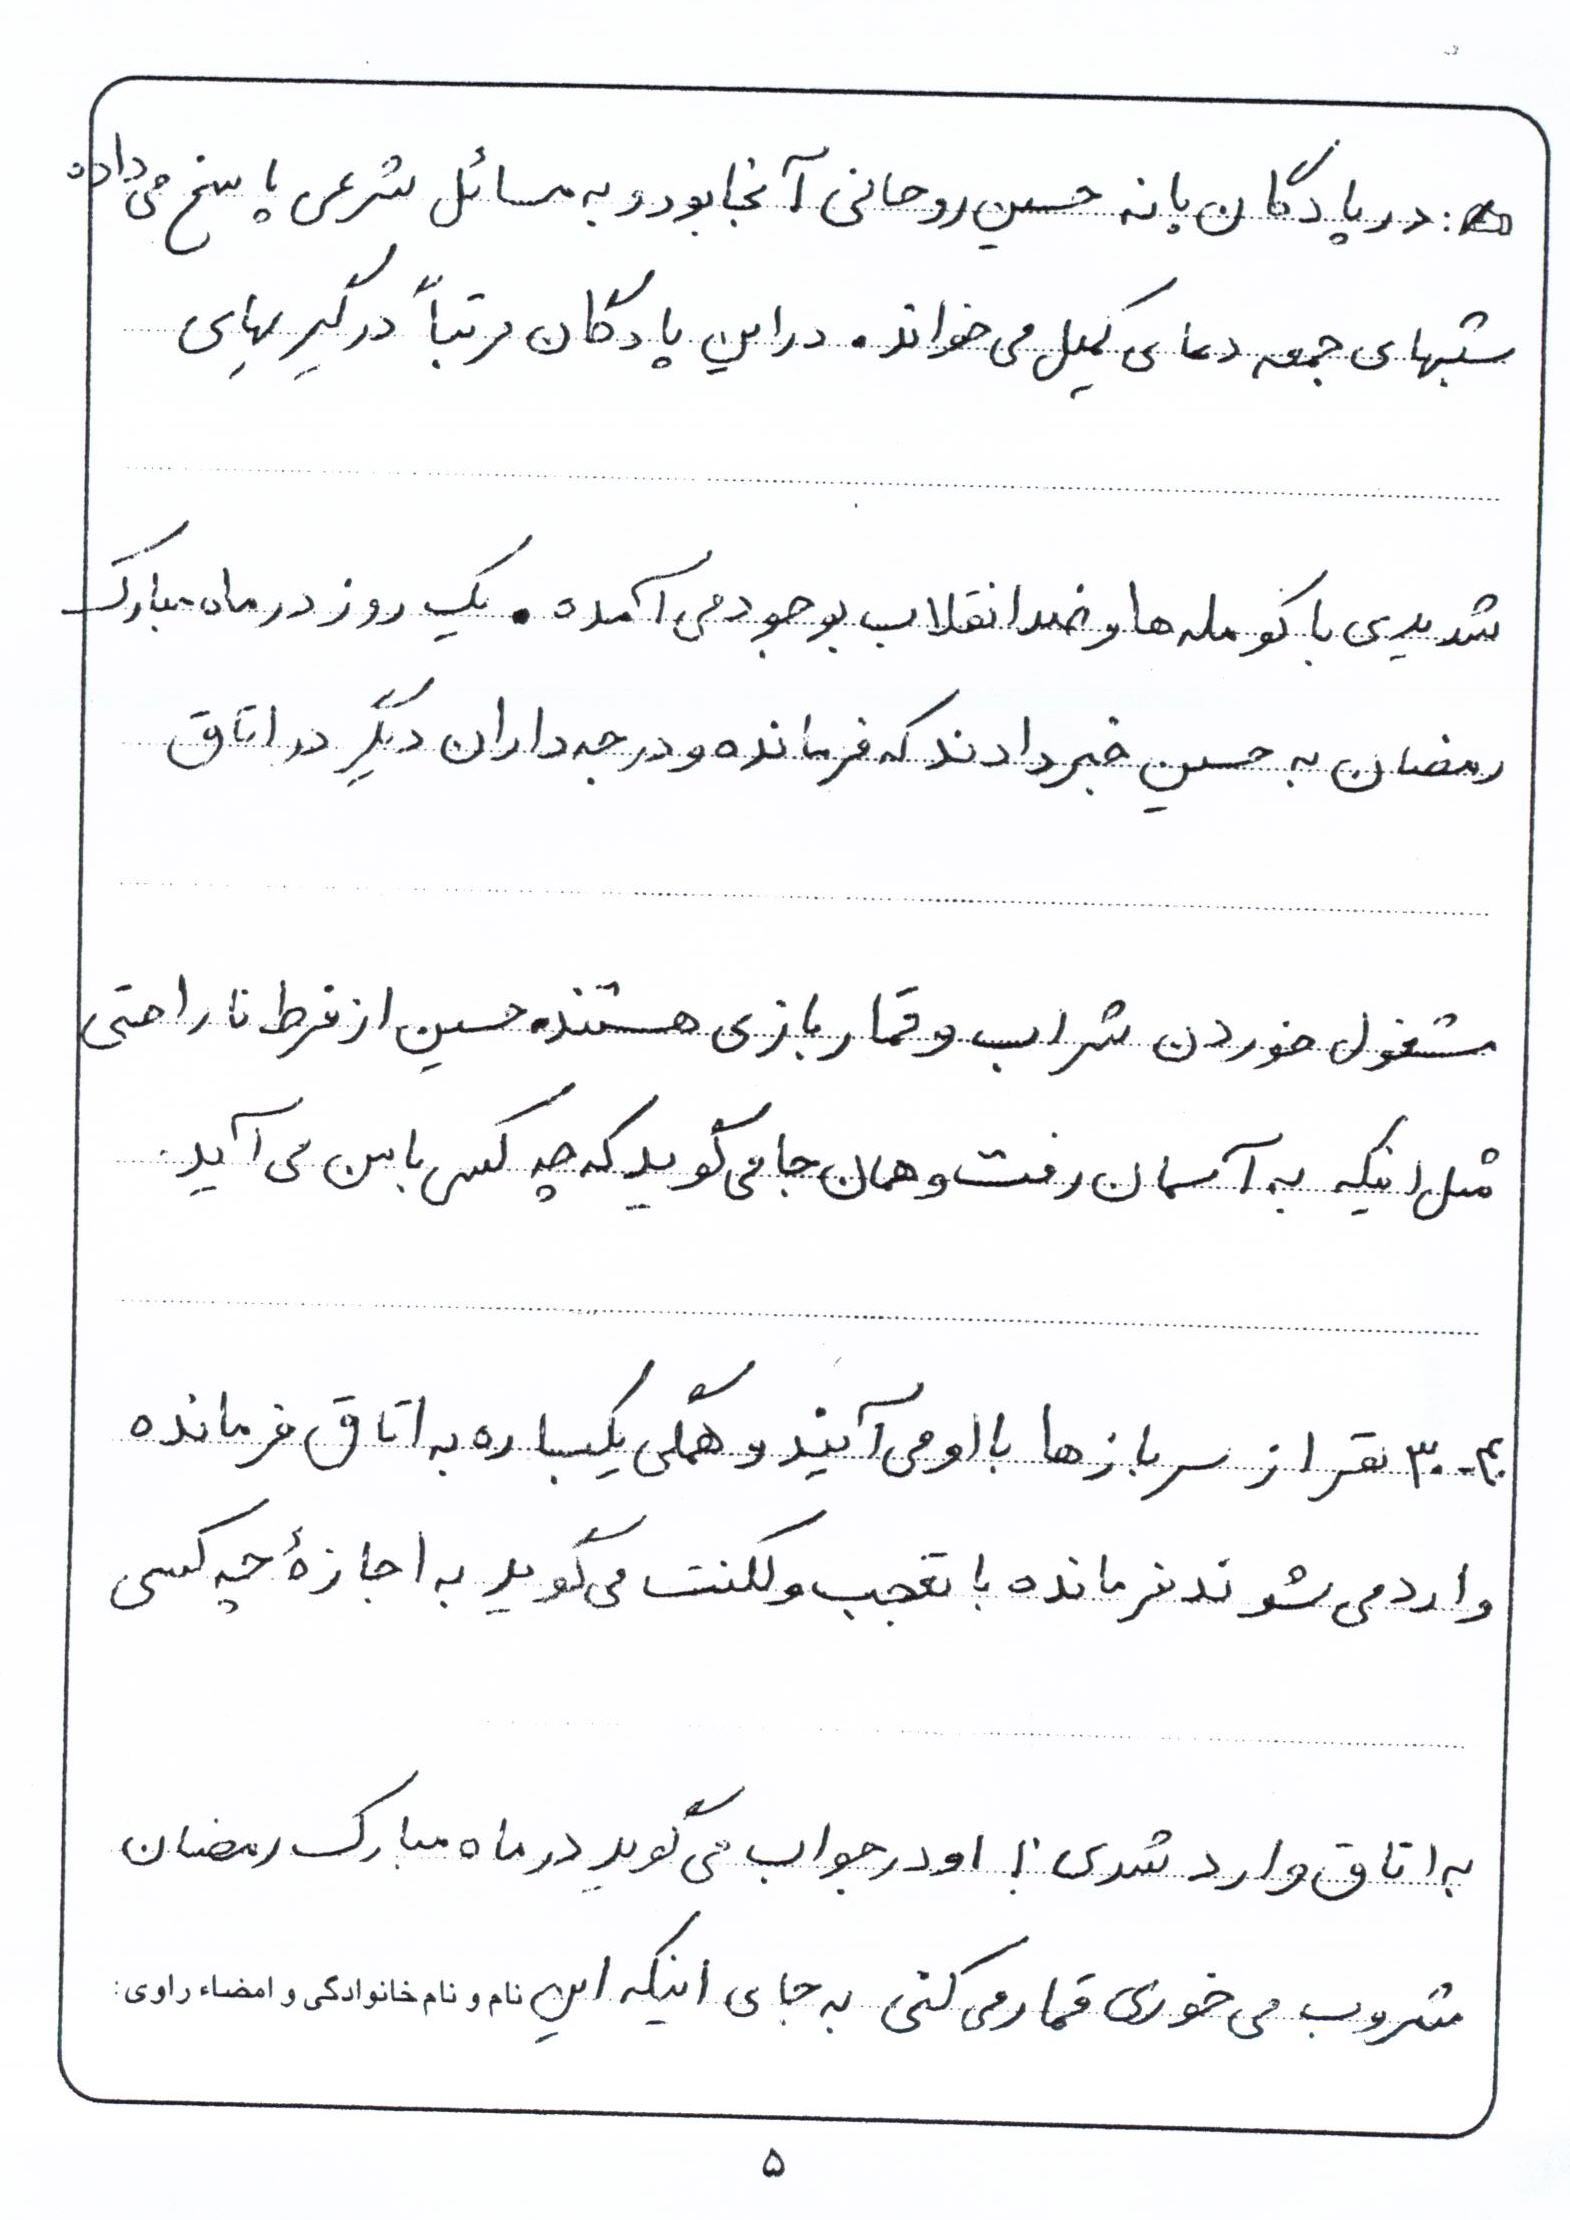 : در پادگان بانه حسین روحانی آنجا بود و به مسائل شرعی پاسخ می‌داد.
شبهای جمعه دعای کمیل می‌خواند. در این پادگان مرتباً درگیریهای
شدیدی با کومله‌ها و ضد انقلاب بوجود می‌آمده. یک روز در ماه مبارک
رمضان به حسین خبر دادند که فرمانده و درجه‌داران دیگر در اتاق
مشغول خوردن شراب و قمار بازی هستند. حسین از فرط ناراحتی
مثل اینکه به آسمان رفت و همان جا می‌گوید که چه کسی با من می‌آید.
۴۰-۳۰ نفر از سربازها با او می‌آیند و همگی یکباره به اتاق فرمانده
وارد می‌شوند فرمانده با تعجب و لکنت می‌گوید به اجازهٔ چه کسی
به اتاق وارد شدی؟! او در جواب می‌گوید در ماه مبارک رمضان
مشروب می‌خوری قمار می‌کنی به جای اینکه این
نام و نام خانوادگی و امضاء راوی:
۵